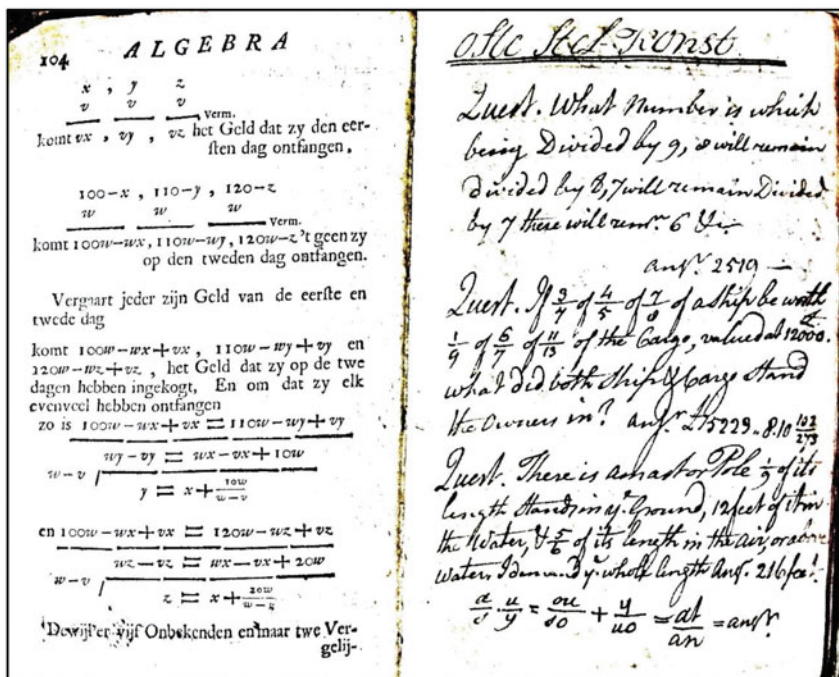 104 ALGEBRA
x , y z
v v v
Verm.
komt vx , vy , vz het Geld dat zy den eer-
sten dag ontfangen,
100-x , 110-y , 120-z
w w w
Verm.
komt 100w-wx, 110w-wy, 120w-z 't geen zy
op den tweden dag ontfangen.
Vergaart jeder zijn Geld van de eerste en
twede dag
komt 100w-wx+vx , 110w-wy+vy en
120w-wz+vz , het Geld dat zy op de twe
dagen hebben ingekogt, En om dat zy elk
evenveel hebben ontfangen
zo is 100w-wx+vx = 110w-wy+vy
wy-vy = wx-vx+10w
w-v
y = x+10w/w-v
en 100w-wx+vx = 120w-wz+vz
wz-vz = wx-vx+20w
w-v
z = x+20w/w-v
Dewijl'er vijf Onbekenden en maar twe Ver-
gelij-
Quest. What Number is which
being Divided by 9, 8 will remain
divided by 8, 7 will remain Divided
by 7 there will remr. 6 &c
Ansr. 2519
Quest. If 3/7 of 4/5 of 7/8 of a Ship be worth
1/9 of 6/7 of 11/13 of the Cargo, valued at 12000.
what did both Ship & Cargo Stand
the Owners in? Ansr. £15229..8.10 102/273
Quest. There is a mast or Pole 1/9 of its
length Stands in ye. Ground, 12 feet of it in
the Water, & 5/6 of its length in the air, or above
Water, I demand ye. whole length Ans. 216 feet.
= ansr.